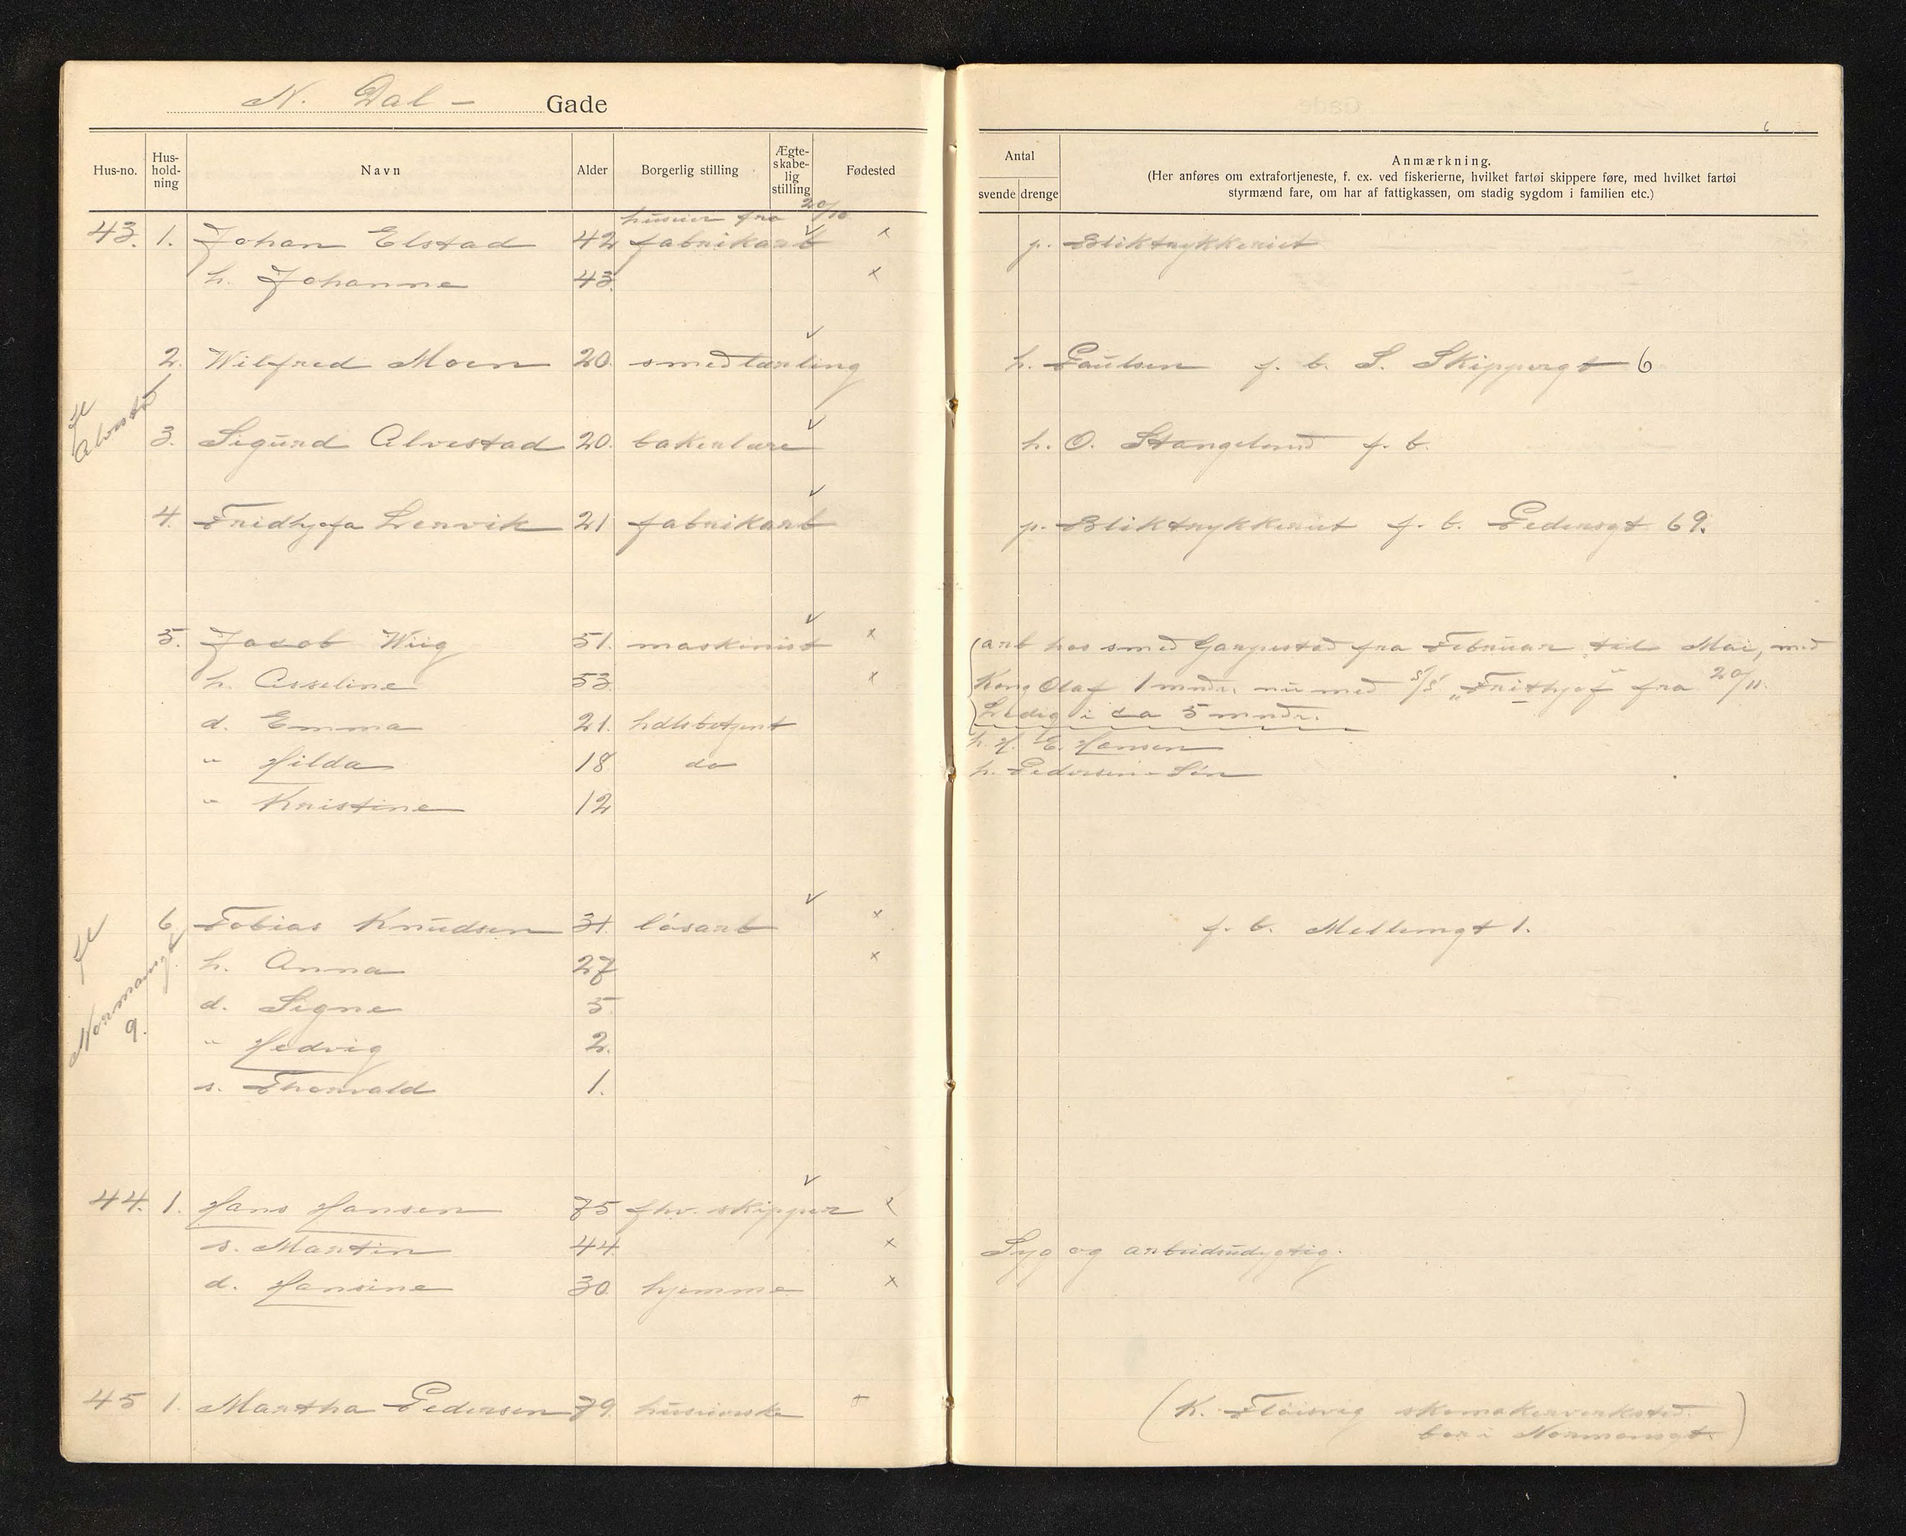 N. Dal - Gade
Hus-no. Hus-hold-ning Navn Alder Borgerlig stilling Ægte-skabe-lig stilling Fødested
huseier fra 20/10
43. 1. Johan Elstad 42 fabrikarb x
h. Johanne 43 x
2. Wilfred Moen 20. smedlærling
Alvestad
3. Sigurd Alvestad 20. bakerlære
4. Fridthjofa Lervik 21 fabrikarb
5. Jacob Wiig 51. maskinist x
h. Asseline 53 x
d. Emma 21. hdlsbetjent
" Hilda 18 do
" Kristine 12
6. Tobias Knudsen 31. løsarb x
h. Anna 27 x
Normansgt 9.
d. Signe 5
" Hedvig 2.
s. Thorvald 1.
44. 1. Hans Hansen 75 fhv. skipper x
s. Martin 44 x
d. Hansine 30. hjemme x
45 1. Martha Pedersen 79. huseierske +
6
Antal
svende drenge
Anmærkning.
(Her anføres om extrafortjeneste, f. ex. ved fiskerierne, hvilket fartøi skippere føre, med hvilket fartøi
styrmænd fare, om har af fattigkassen, om stadig sygdom i familien etc.)
p. Bliktrykkeriet
h. Paulsen f. b. S. Skippergt 6
h. O. Stangeland f. b.
p. Bliktrykkeriet f. b. Pedersgt 69.
(arb hos smed Garpestad fra Februar til Mai, med
Kong Olaf 1 mndr. nu med s/s "Frithjof" fra 20/11.
Ledig i ca 5 mndr.
h. H. E. Hansen
h. Pedersen & Søn
f. b. Mellemgt 1.
Syg og arbeidsudygtig.
(K. Fløisvig skomakerverksted.
bor i Normansgt.)